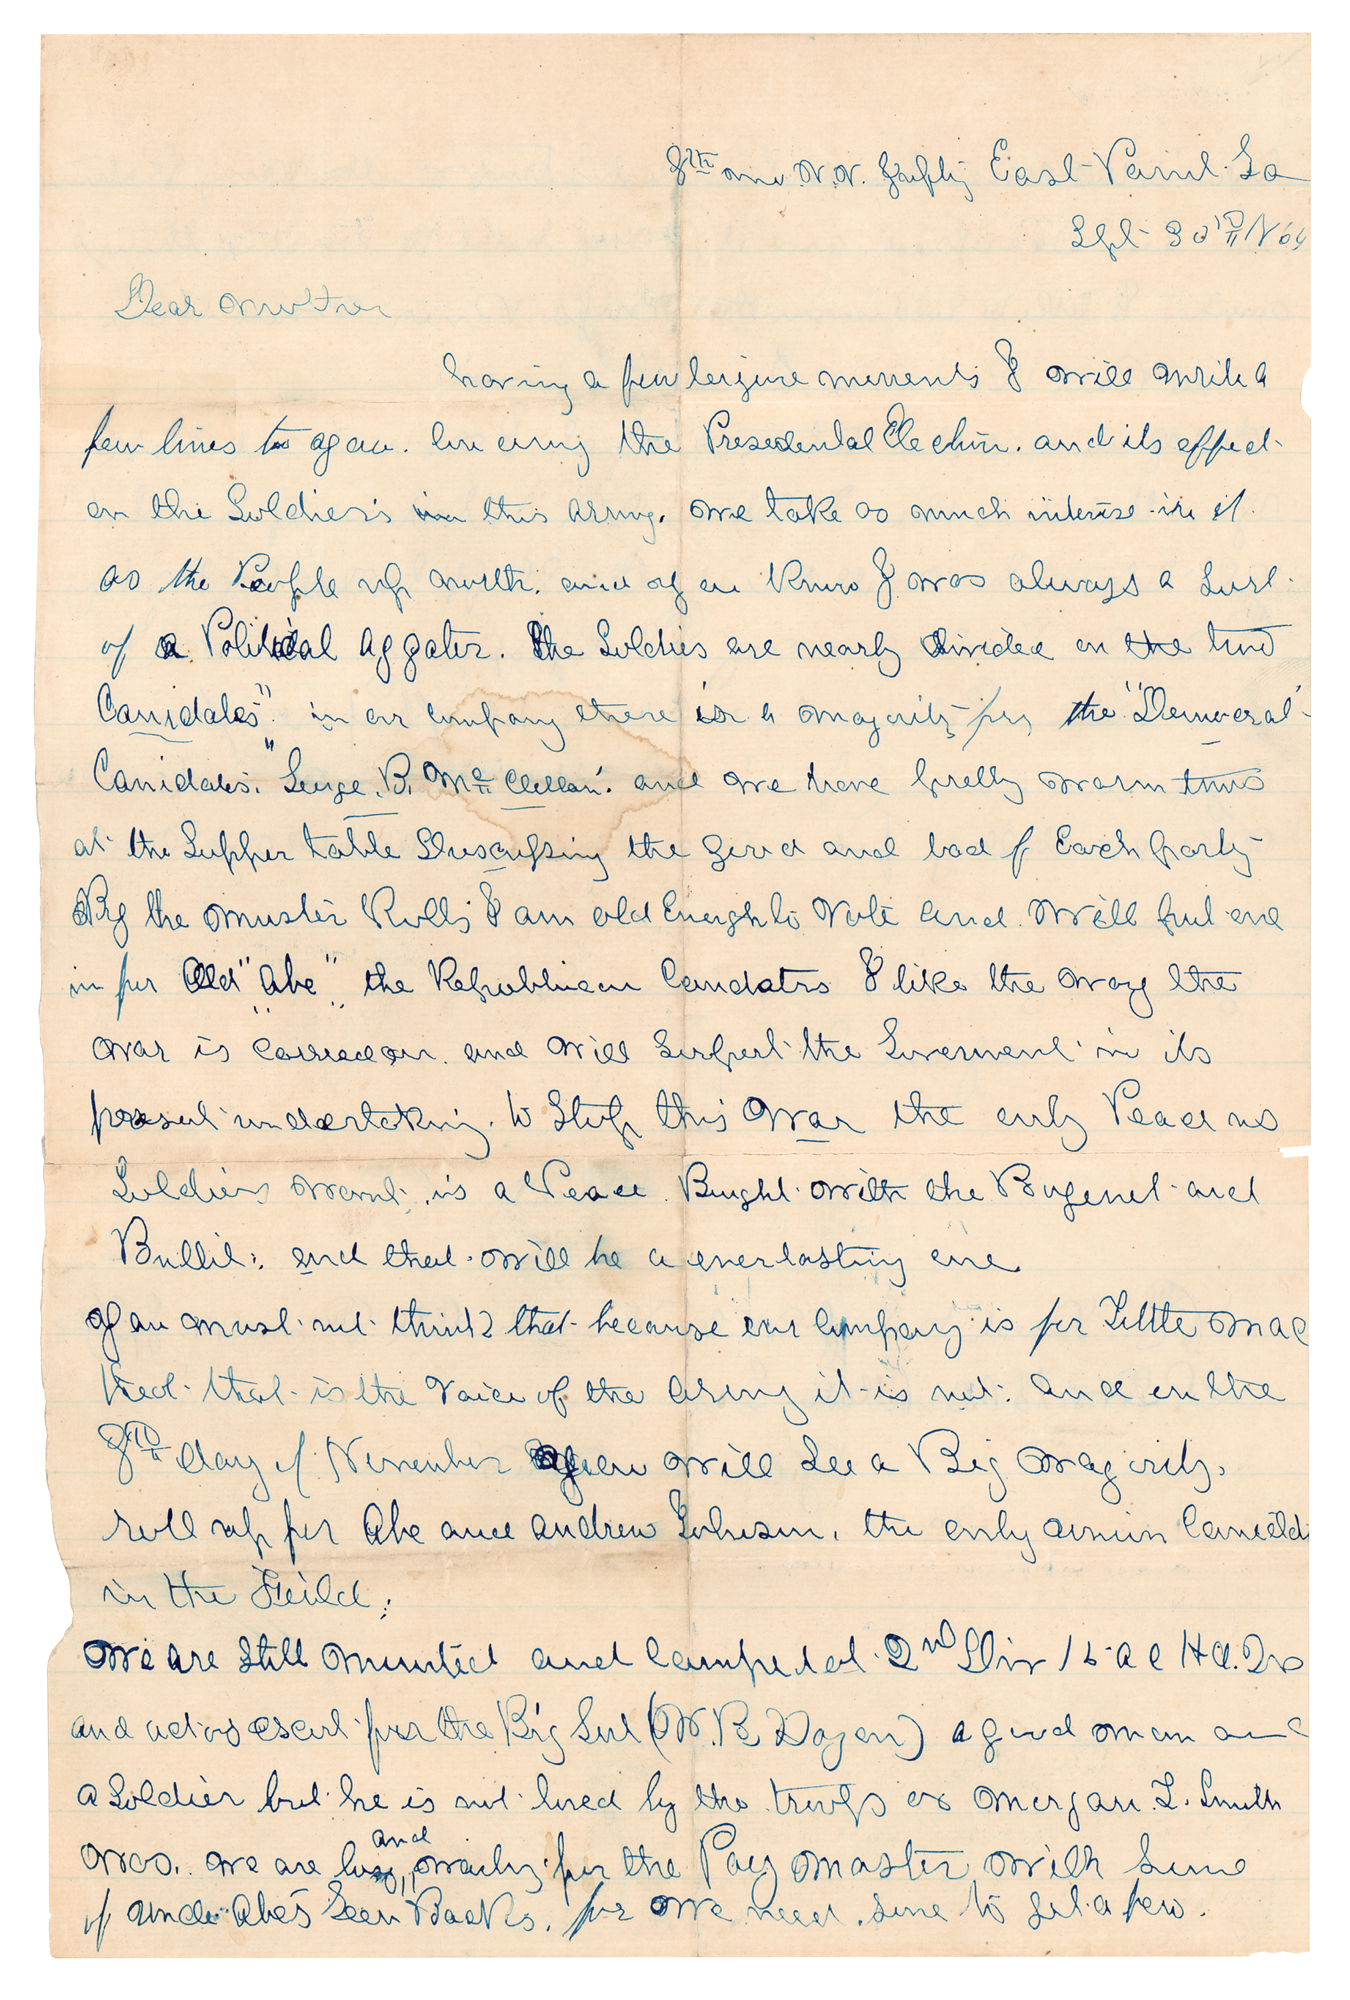 8th Mo V. V. Infty East Point Ga
Sept 30th /64
Dear Mother
having a few leizure moments I will write a
few lines to you. concerning the Presedental Election. and its effect
on the Soldiers in this army. We take as much interise in it
as the People up north. and you know I was always a Sort
of a Political Aggater. the Soldies are nearly divided on the two
Canidates". in our Company there is a majority for the "Democrat
Canidates." George. B. Mc Clellan". and we have pretty warm times
at the Supper table Discussing the good and bad of Each party
By the Muster Rolls I am old Enough to Vote and Will put one
in for Old "Abe" the Republican Candates I like the way the
War is Carried on. and Will Surport the Goverment in its
present undertaking. to Stop this War the only Peace us
Soldiers want is a Peace Bought With the Bayenet and
Bullit: and that Will be a everlasting one
You must not think that because our Company is for Little Mac
that that is the Voice of the Army it is not. and on the
8th day of November you Will See a Big Magority
roll up for Abe and Andrew Johnson. the only Canidd
in the Feild.
We are Still Mounted and Camped at 2nd Div 15 A C Hd. Qrs
and act as escort for the Big Gen (W. B. Hazen) a good man and
a Soldier but he is not loved by the troops as Morgan L. Smith
Was. We are busy and waiting for the Pay Master With Some
of Uncle Abe's Green Backs. for We need some to get a few.